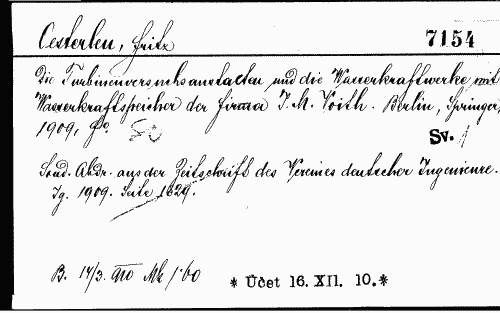 Oesterlen, Fritz
7154
Die Turbinenversuchsanstalten und die Wasserkraftwerke mit
Wasserkraftspeicher der Firma J. M. Voith. Berlin, Springer,
1909, 4o.
Sv. 1
Sond. Abdr. aus der Zeitschrift des Vereines deutscher Ingenieure.
Jg. 1909. Seite 1629.
B. 14/3. 910 Mk 1·60
* Účet 16. XII. 10.*